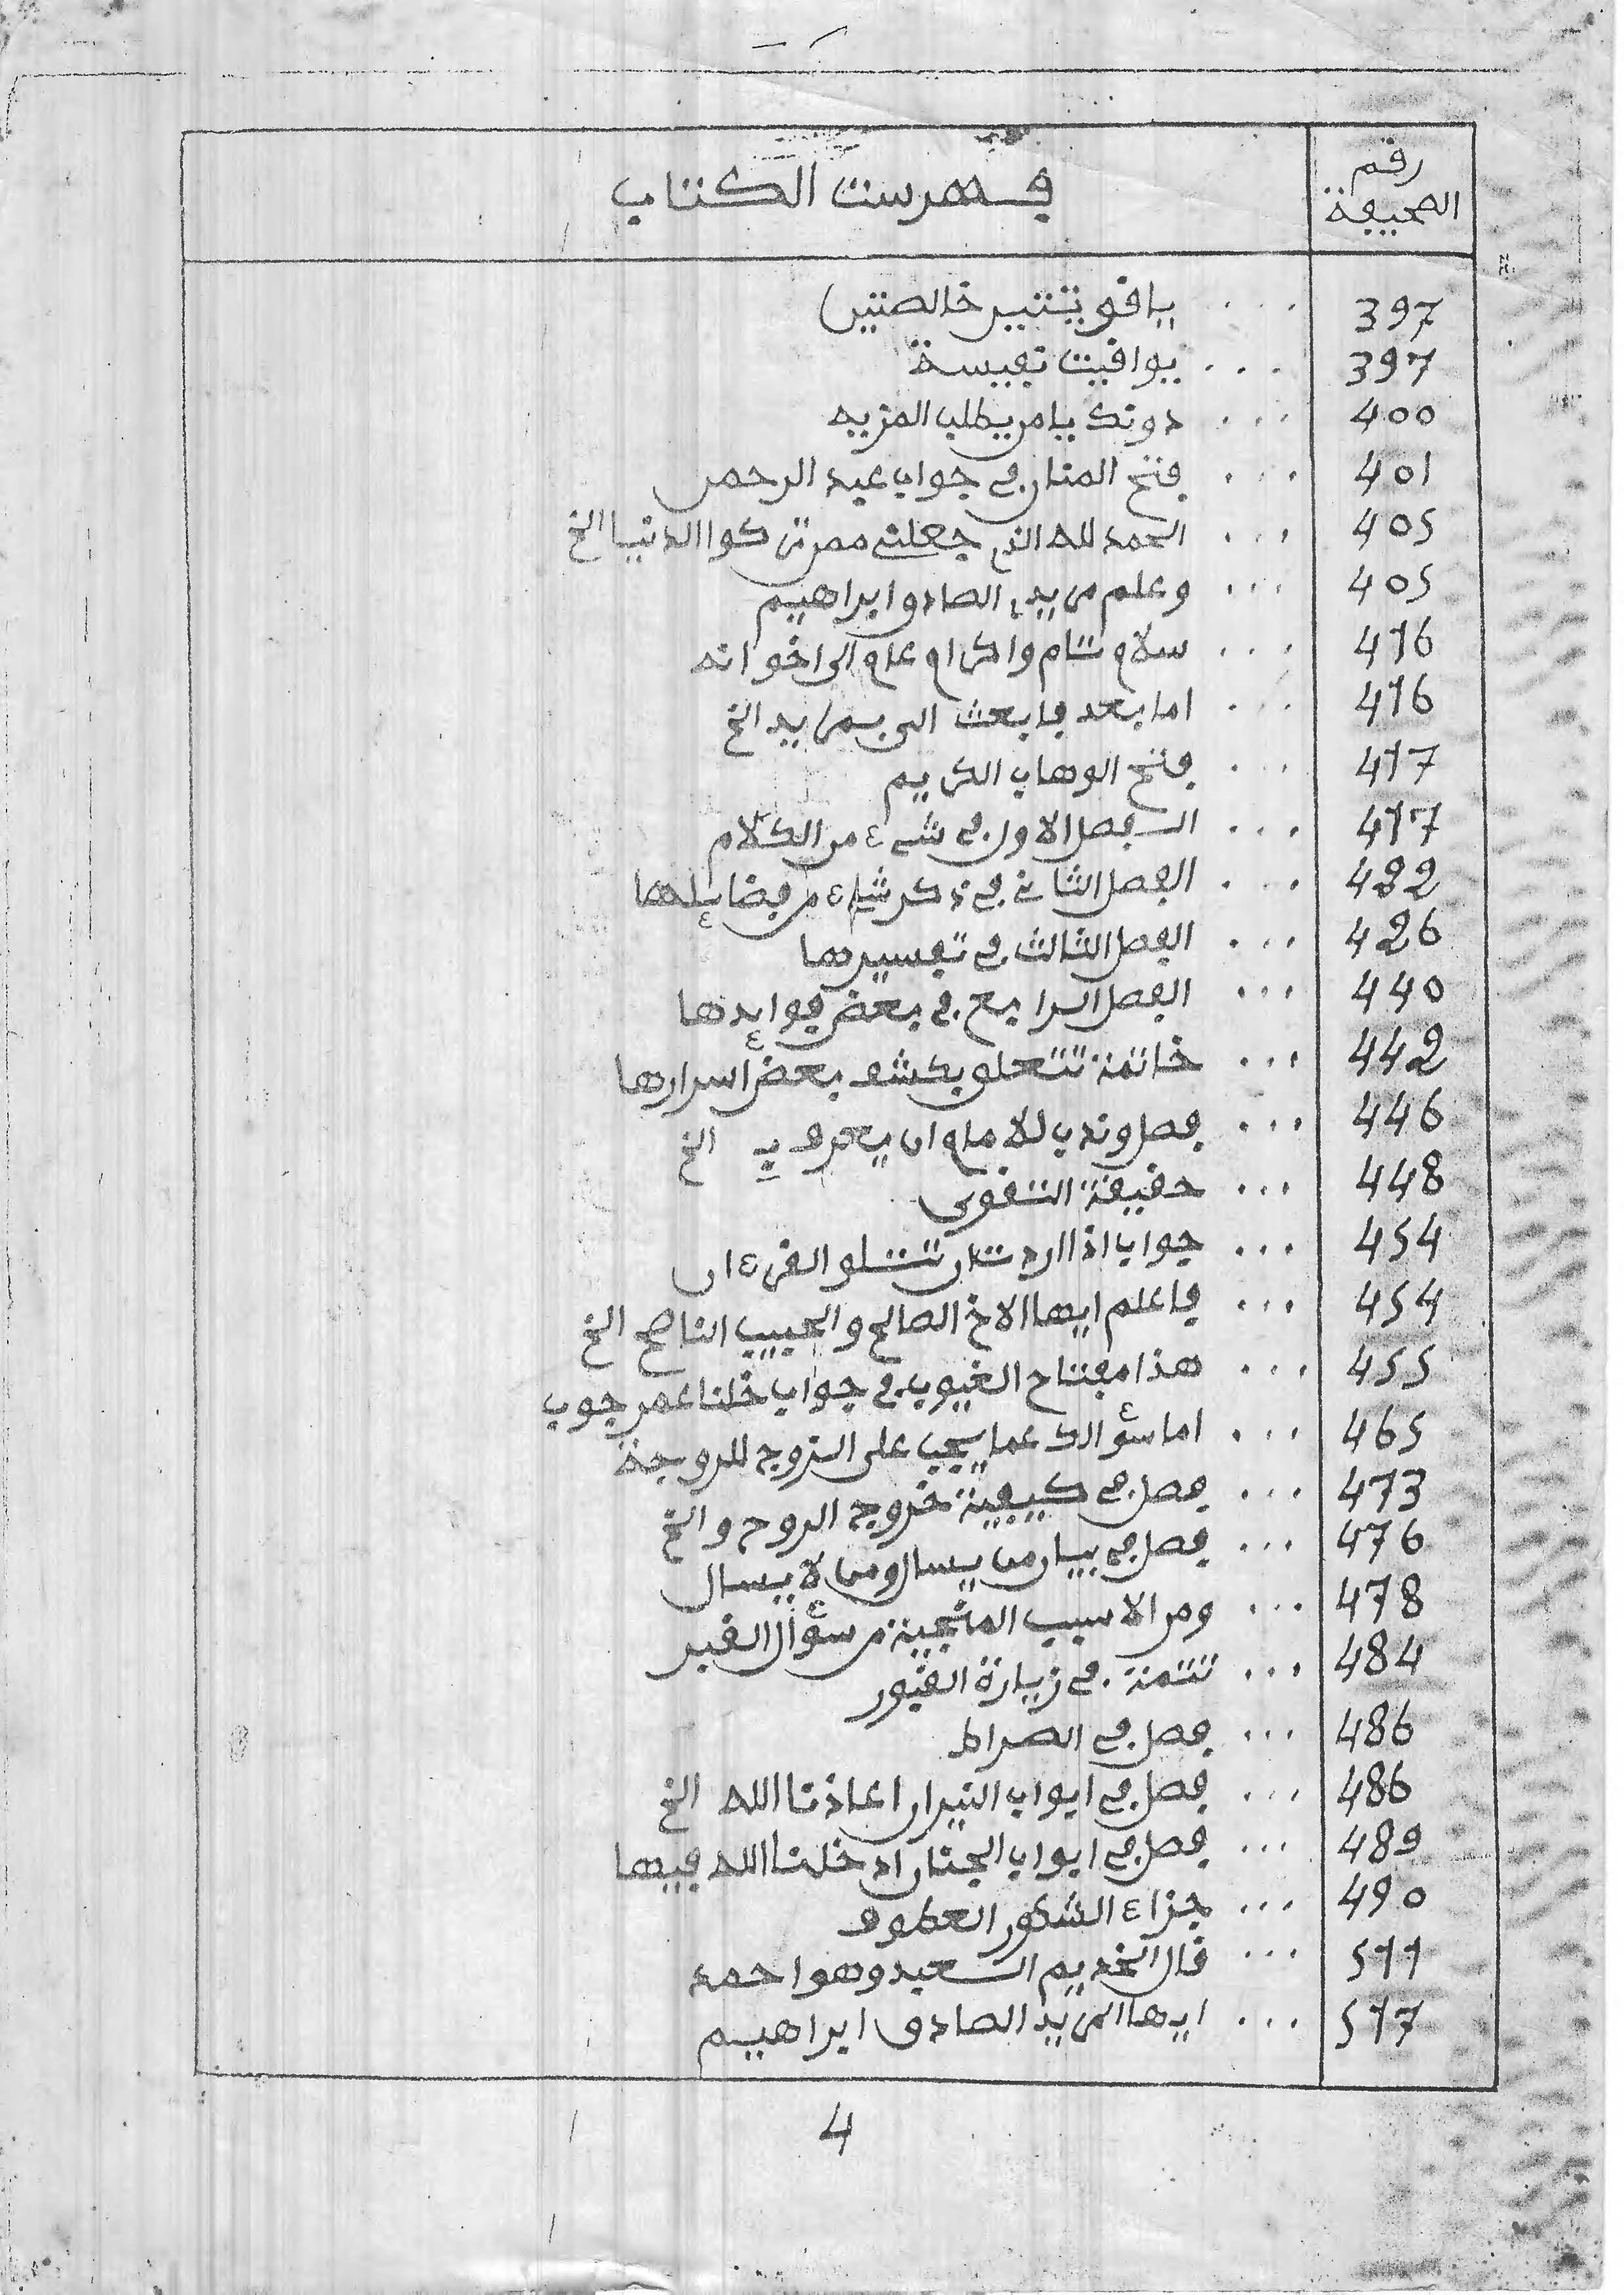 رقم الصحيفة
فهرست الكتاب
397 ... ياقوتتين خالصتين
397 ... يواقيت نفيسة
400 ... دونك يا من يطلب المزيد
401 ... فتح المنان في جواب عبد الرحمن
405 ... الحمد لله الذي جعلني ممن تركوا الدنيا الخ
405 ... وعلم مريدي الصادق ابراهيم
416 ... سلام تام واكرام عام الى اخوانه
416 ... اما بعد فابعث الى بمريد الخ
417 ... فتح الوهاب الكريم
417 ... الفصل الاول في شيء من الكلام
422 ... الفصل الثاني في ذكر شيء من فضائلها
426 ... الفصل الثالث في تفسيرها
440 ... الفصل الرابع في بعض فوائدها
442 ... خاتمة تتعلق بكشف بعض أسرارها
446 ... فصل وندب للامام ان يعرف به الخ
448 ... حقيقة التقوى
454 ... جواب اذا اردت ان تتلو القرءان
454 ... فاعلم ايها الاخ الصالح والحبيب الناصح الخ
455 ... هذا مفتاح الغيوب في جواب خلنا عمر جوب
465 ... اما سؤالك عما يجب على الزوج للزوجة
473 ... فصل في كيفية خروج الروح والخ
476 ... فصل في بيان من يسال ومن لا يسال
478 ... ومن الاسبب المنجية من سؤال القبر
484 ... تتمة في زيارة القبور
486 ... فصل في الصراط
486 ... فصل في ابواب النيران اعاذنا الله الخ
489 ... فصل في ابواب الجنان ادخلنا الله فيها
490 ... جزاء الشكور العطوف
511 ... قال الخديم السعيد وهو احمد
517 ... ايها المريد الصادق ابراهيم
4